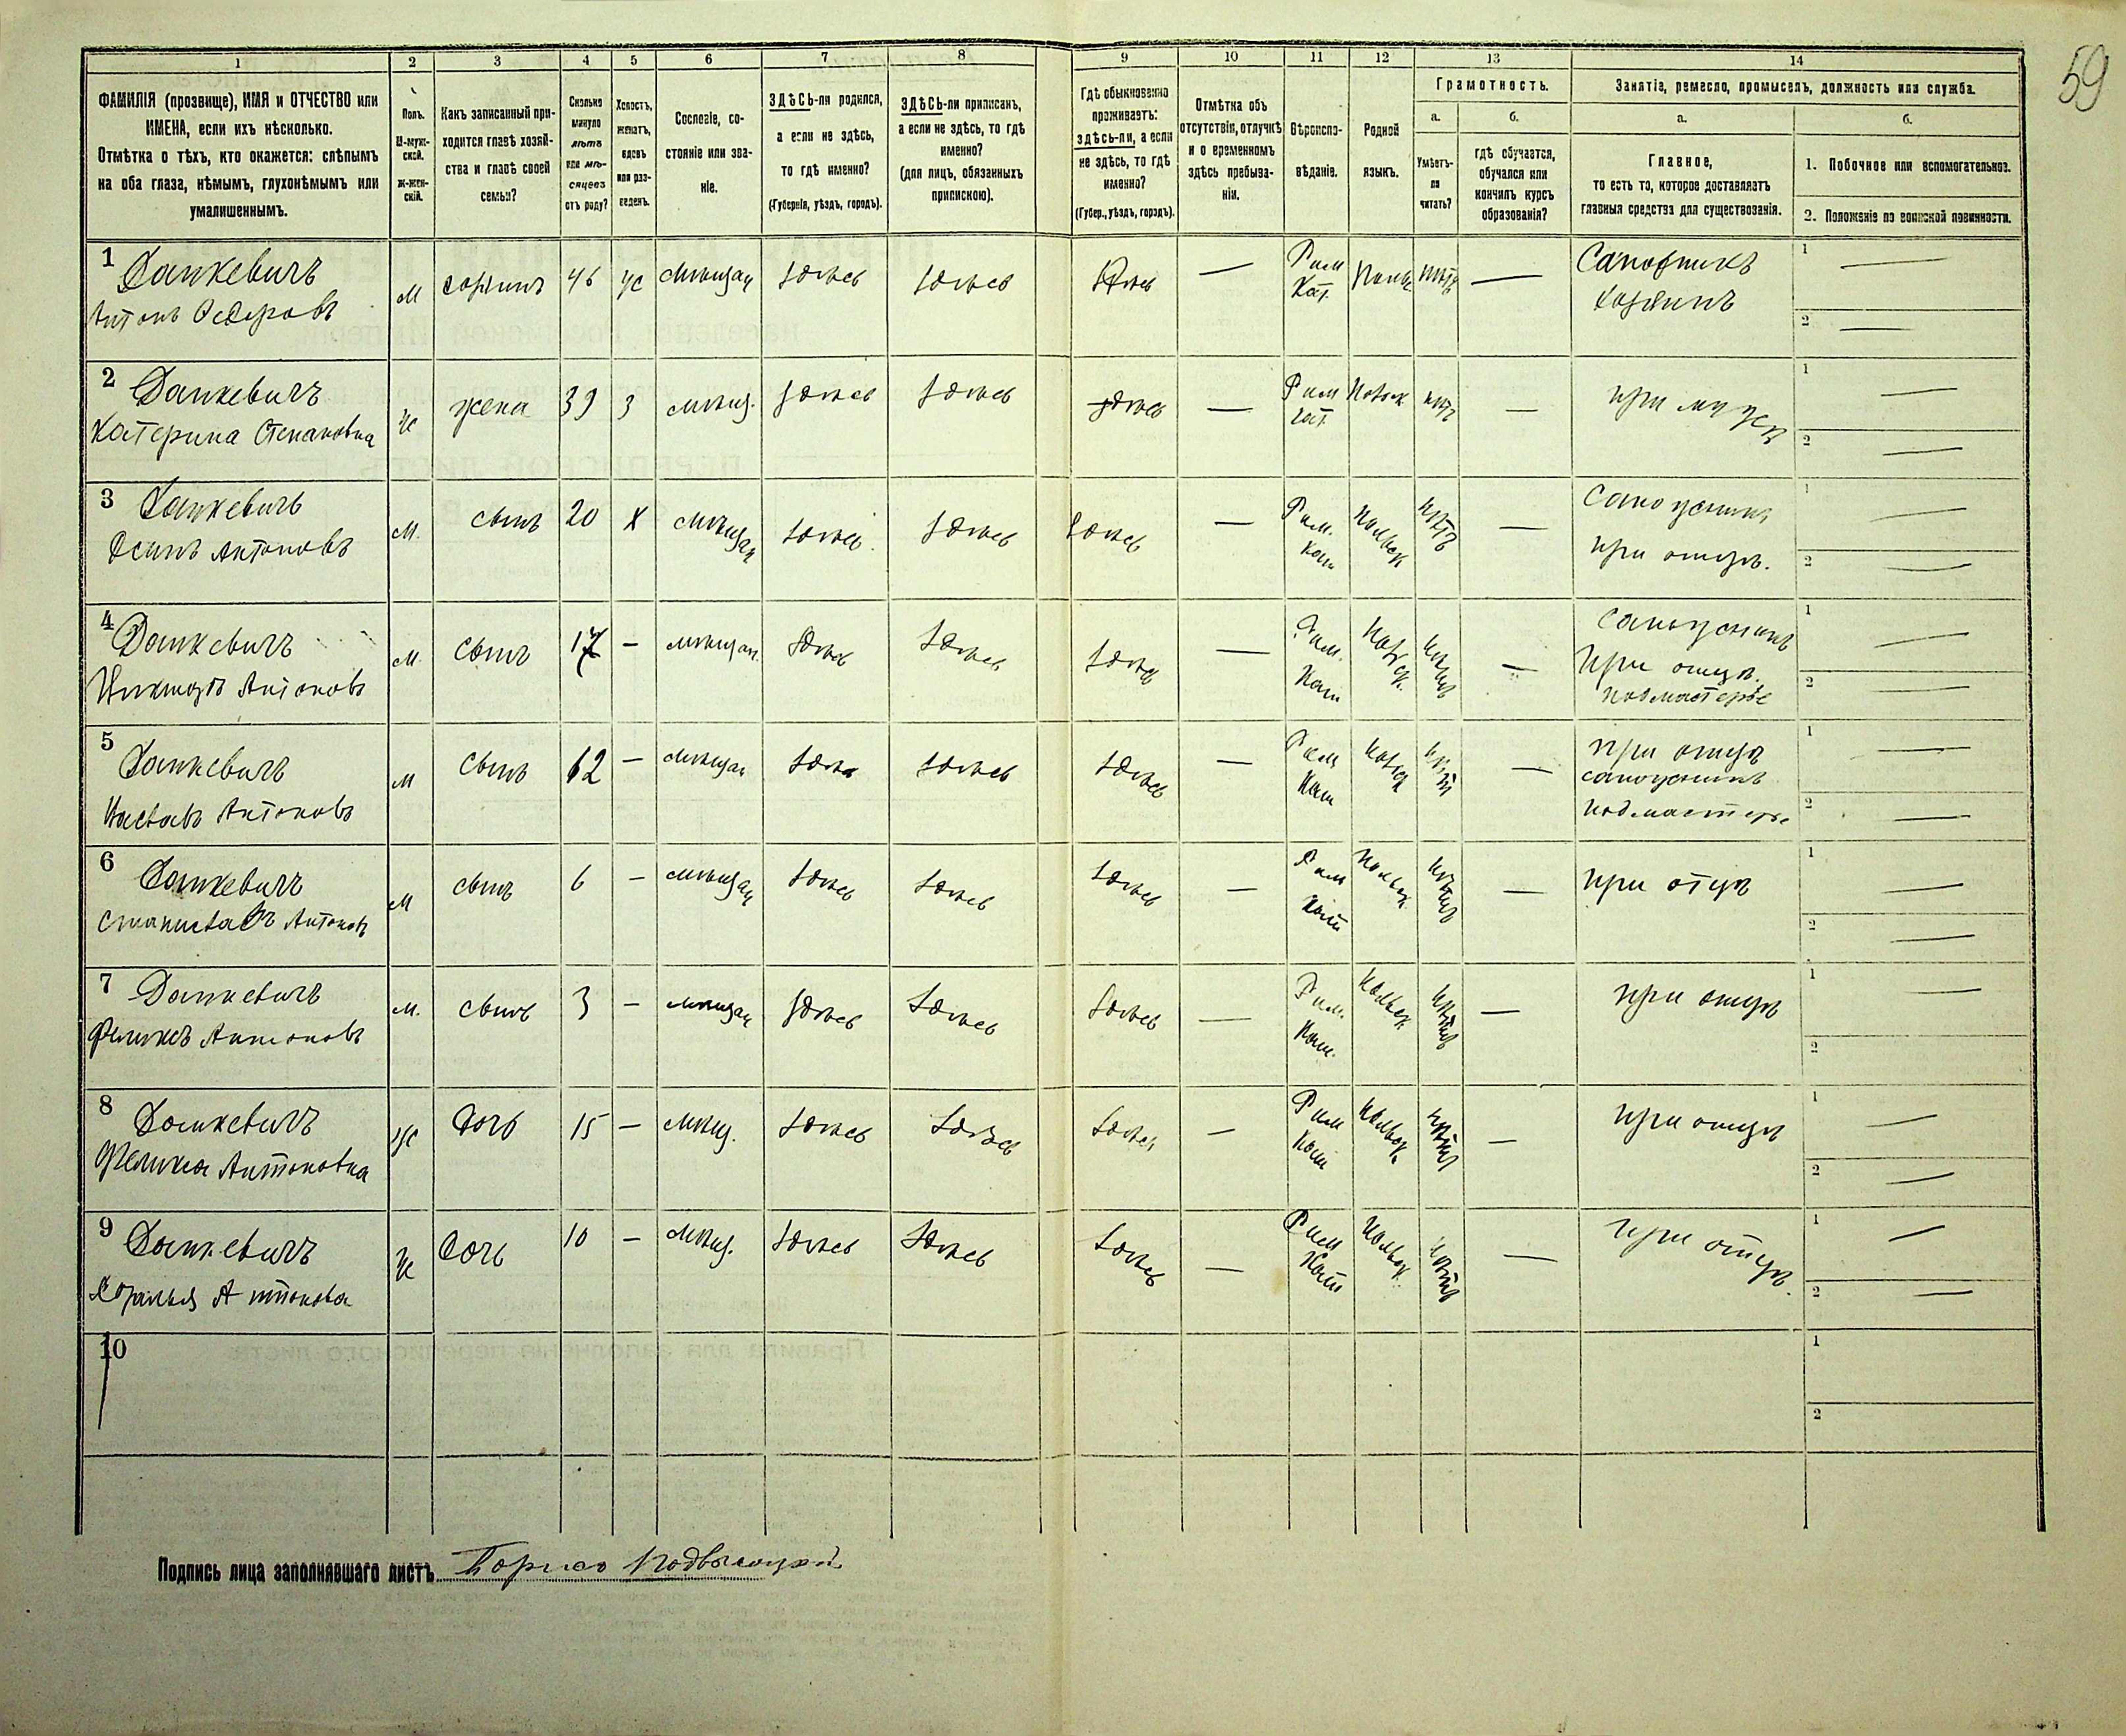 59
1 2 3 4 5 6 7 8 9 10 11 12 13 14
ФАМИЛІЯ (прозвище), ИМЯ и ОТЧЕСТВО или
ИМЕНА, если ихъ нѣсколько.
Отмѣтка о тѣхъ, кто окажется: слѣпымъ
на оба глаза, нѣмымъ, глухонѣмымъ или
умалишеннымъ.
Полъ.
М-муж-
ской.
ж-жен-
скій.
Какъ записанный при-
ходится главѣ хозяй-
ства и главѣ своей
семьи?
Сколько
минуло
лѣтъ
или мѣ-
сяцевъ
отъ роду?
Холостъ,
женатъ,
вдовъ
или раз-
веденъ.
Сословіе, со-
стояніе или зва-
ніе.
ЗДѢСЬ-ли родился,
а если не здѣсь,
то гдѣ именно?
(Губернія, уѣздъ, городъ).
ЗДѢСЬ-ли приписанъ,
а если не здѣсь, то гдѣ
именно?
(для лицъ, обязанныхъ
припискою).
Гдѣ обыкновенно
проживаетъ:
здѣсь-ли, а если
не здѣсь, то гдѣ
именно?
(Губер., уѣздъ, городъ).
Отмѣтка объ
отсутствіи, отлучкѣ
и о временномъ
здѣсь пребыва-
ніи.
Вѣроиспо-
вѣданіе.
Родной
языкъ.
Грамотность.
а.
Умѣетъ-
ли
читать?
б.
гдѣ обучается,
обучался или
кончилъ курсъ
образованія?
Занятіе, ремесло, промыселъ, должность или служба.
а.
Главное,
то есть то, которое доставляетъ
главныя средства для существованія.
б.
1. Побочное или вспомогательное.
2. Положеніе по воинской повинности.
1 Данкевичъ
Антонъ
м хозяинъ 46 ж мѣщан здѣсь здѣсь здѣсь — Рим Кат. Польс нѣтъ — Сапожникъ хозяинъ 1 — 2 —
2 Данкевичъ
Катерина Степановна
ж жена 39 з мѣщ. здѣсь здѣсь здѣсь — Рим Кат. Польск нѣтъ — при мужѣ 1 — 2 —
3 Данкевичъ
Осипъ Антоновъ
м. сынъ 20 х мѣщан здѣсь здѣсь здѣсь — Рим. Кат Польск нѣтъ — Сапожникъ при отцѣ. 1 — 2 —
4 Данкевичъ
Антоновъ
м. сынъ 17 — мѣщан. здѣсь здѣсь здѣсь — Рим. Кат Польск. нѣтъ — Сапожникъ при отцѣ. подмастерье 1 — 2 —
5 Данкевичъ
Антоновъ
м сынъ 12 — мѣщан здѣсь здѣсь здѣсь — Рим Кат Польск нѣтъ — при отцѣ сапожникъ подмастерье 1 — 2 —
6 Данкевичъ
Станиславъ Антоновъ
м сынъ 6 — мѣщан здѣсь здѣсь здѣсь — Рим Кат Польск нѣтъ — при отцѣ 1 — 2 —
7 Данкевичъ
Феликсъ Антоновъ
м. сынъ 3 — мѣщан здѣсь здѣсь здѣсь — Рим. Кат. Польск нѣтъ — при отцѣ 1 — 2
8 Данкевичъ
Антоновна
ж дочь 15 — мѣщ. здѣсь здѣсь здѣсь — Рим Кат Польск нѣтъ — при отцѣ 1 — 2 —
9 Данкевичъ
Антонова
ж дочь 10 — мѣщ. здѣсь здѣсь здѣсь — Рим Кат Польск нѣтъ — при отцѣ. 1 — 2 —
10 1 2
Подпись лица заполнявшаго листъ Борисъ Подвысоцкій